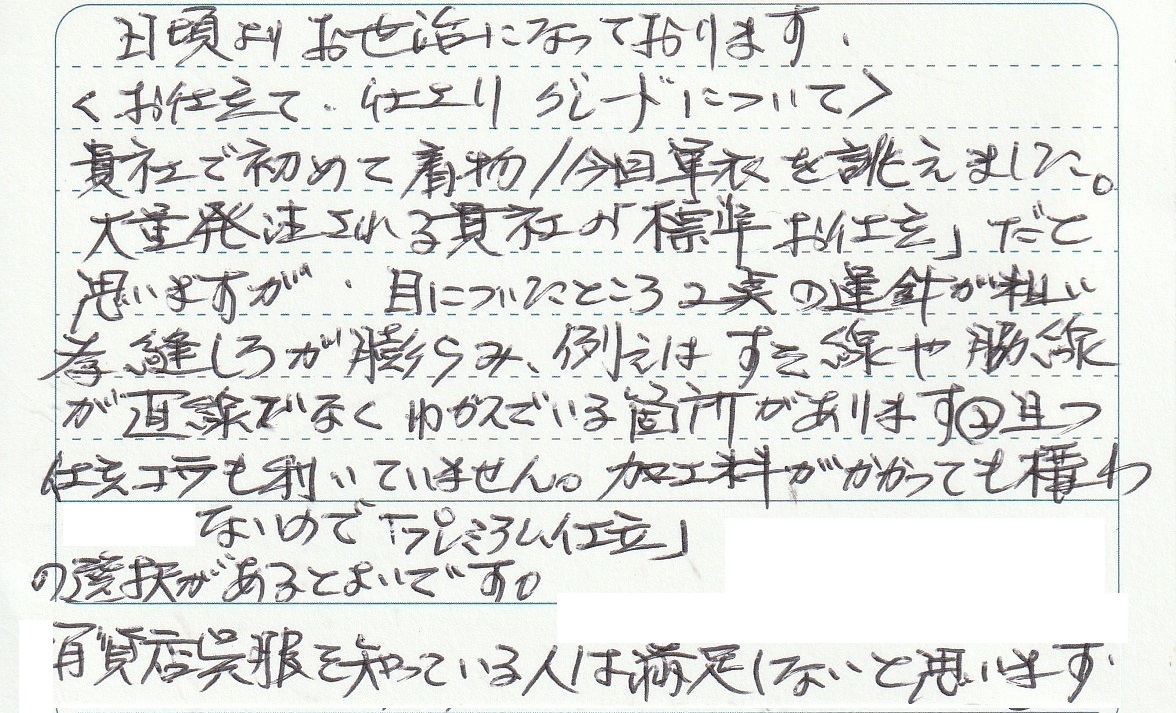 日頃よりお世話になっております.
<お仕立て.仕上り グレードについて>
貴社で初めて着物/今回単衣を誂えました。
大量発注される貴社の「標準お仕立」だと
思いますが. 目についたところ2点の運針が粗い
為縫しろが膨らみ、例えばすそ線や脇線
が直線でなくゆがんでいる箇所があります②且つ
仕立コテも利いていません。加工料がかかっても構わ
ないので「プレミアム仕立」
の選択があるとよいです。
百貨店呉服を知っている人は満足しないと思います.